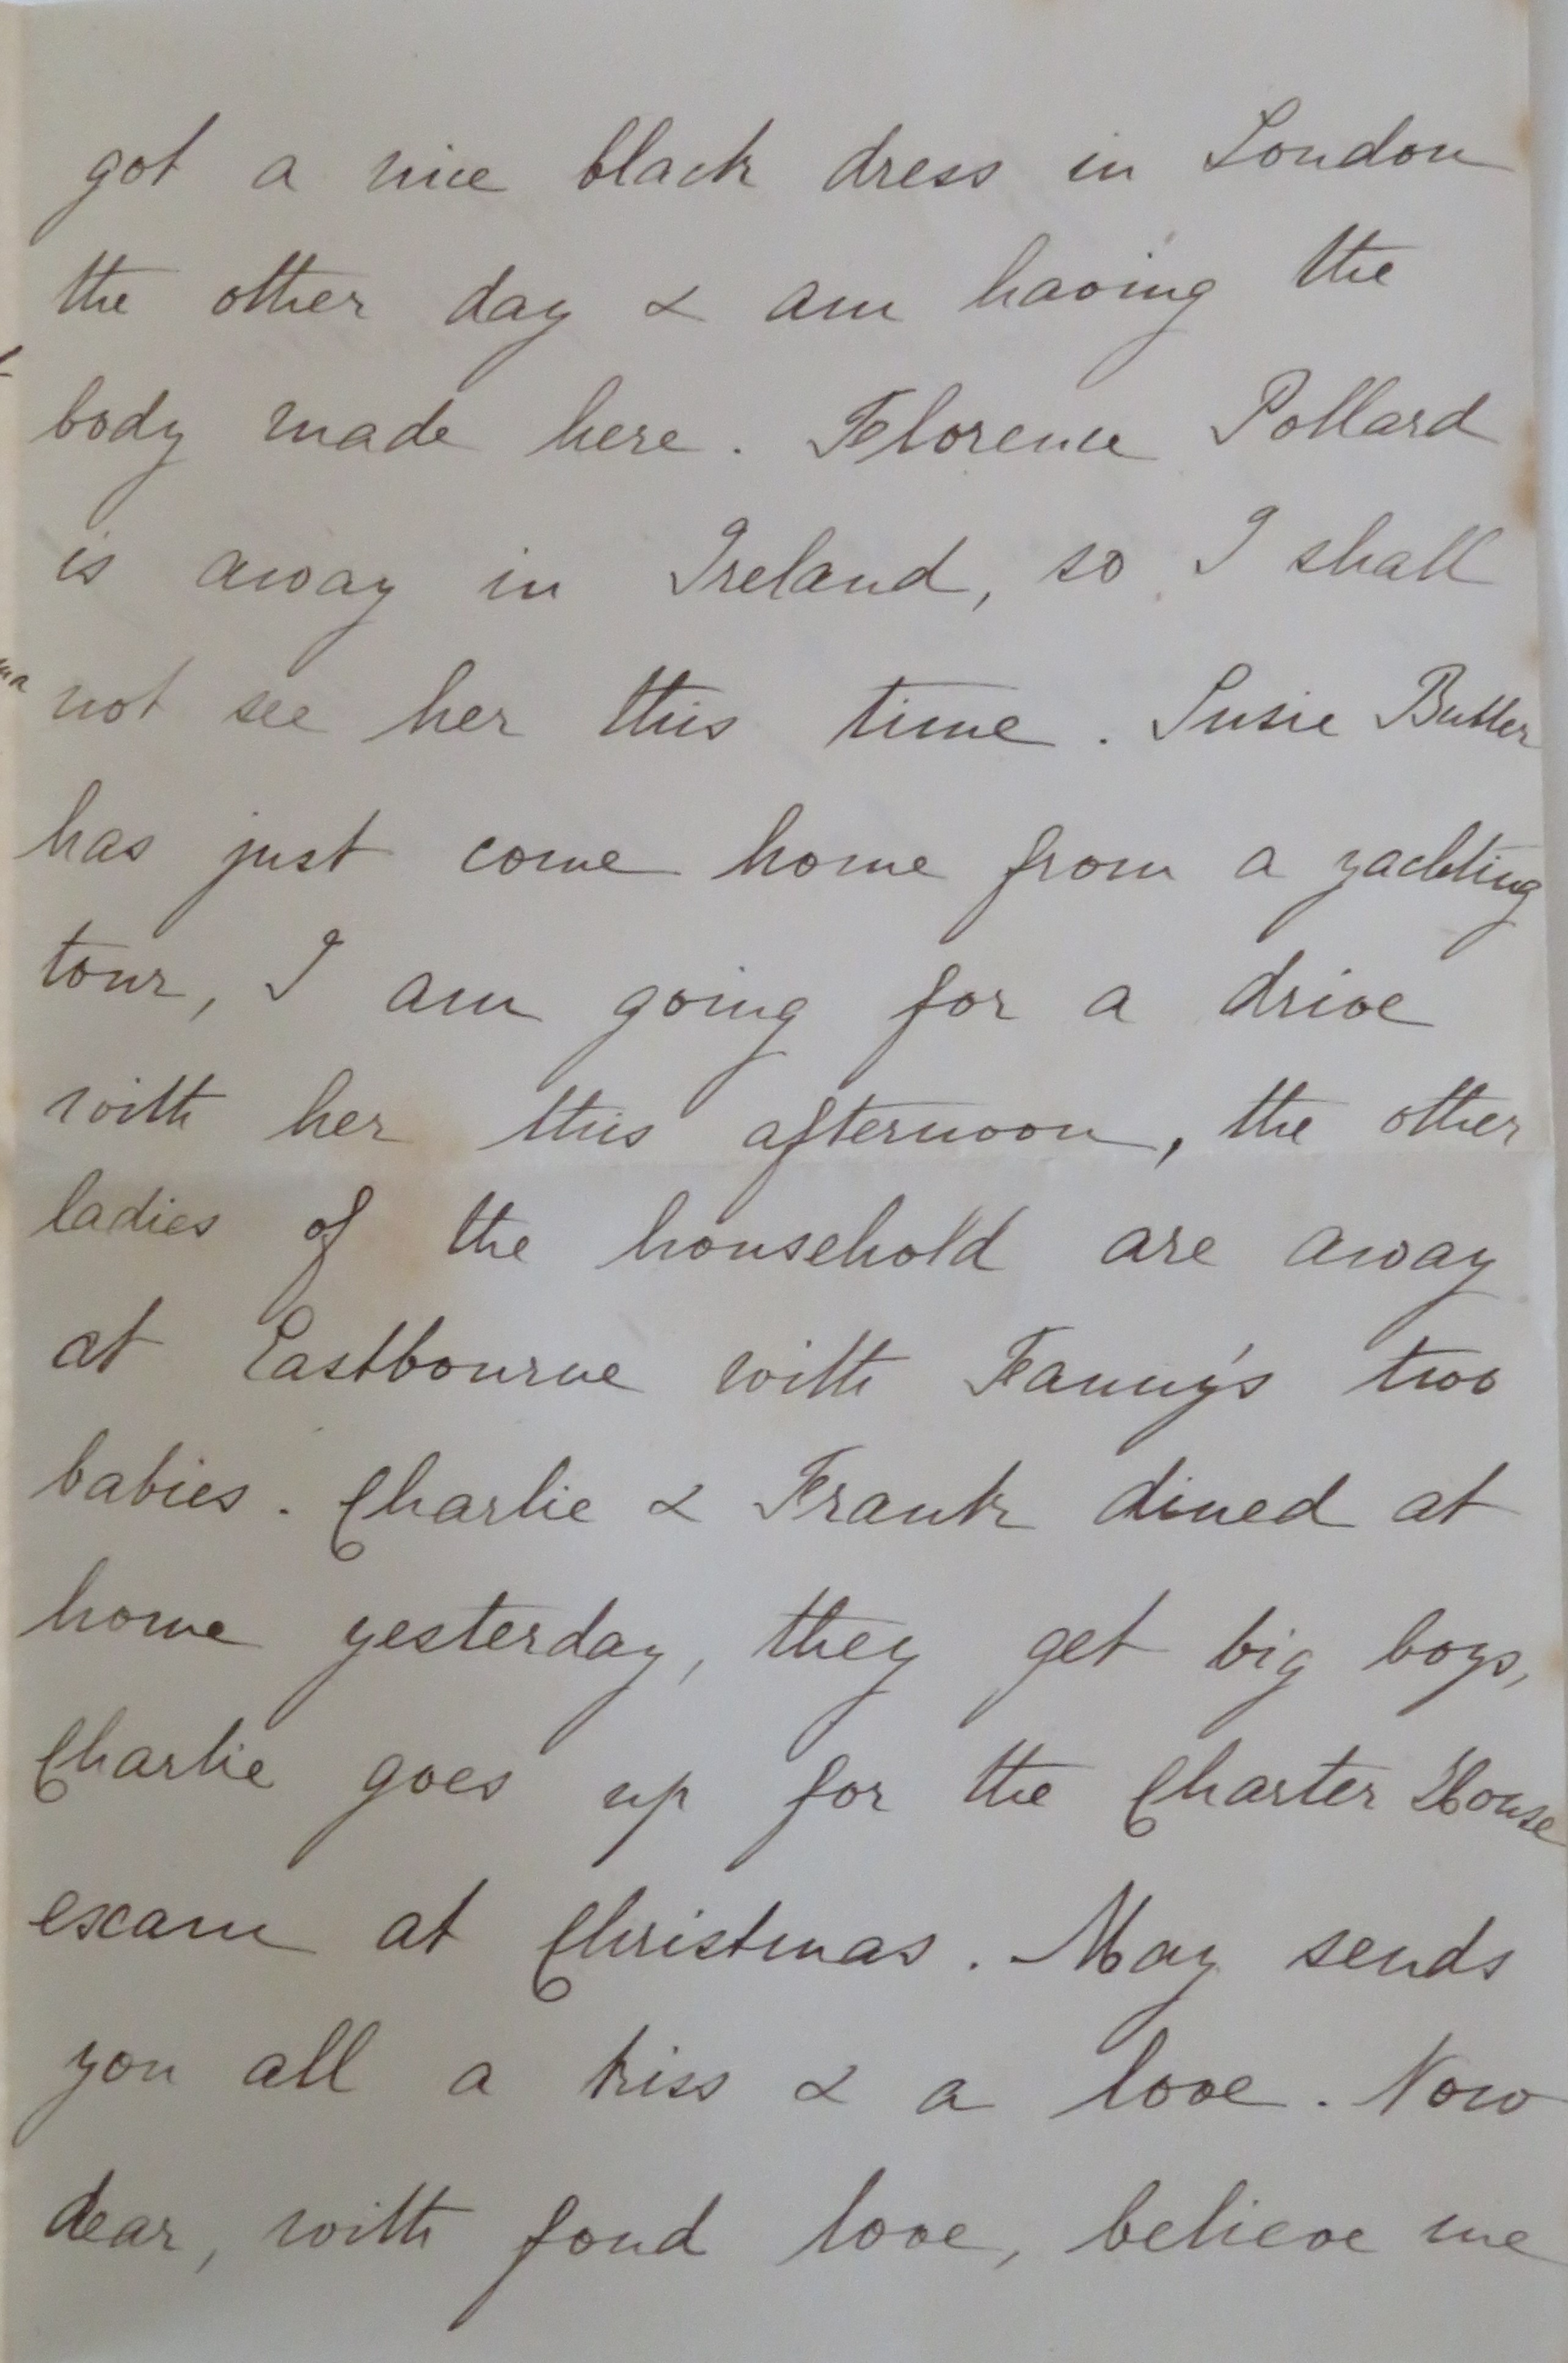 got a nice black dress in London
the other day & am having the
body made here. Florence Pollard
is away in Ireland, so I shall
not see her this time. Susie Butler
has just come home from a yachting
tour, I am going for a drive
with her this afternoon, the other
ladies of the household are away
at Eastbourne with Fanny's two
babies. Charlie & Frank dined at
home yesterday, they get big boys,
Charlie goes up for the Charter House
exam at Christmas. May sends
you all a kiss & a love. Now
dear, with fond love, believe me